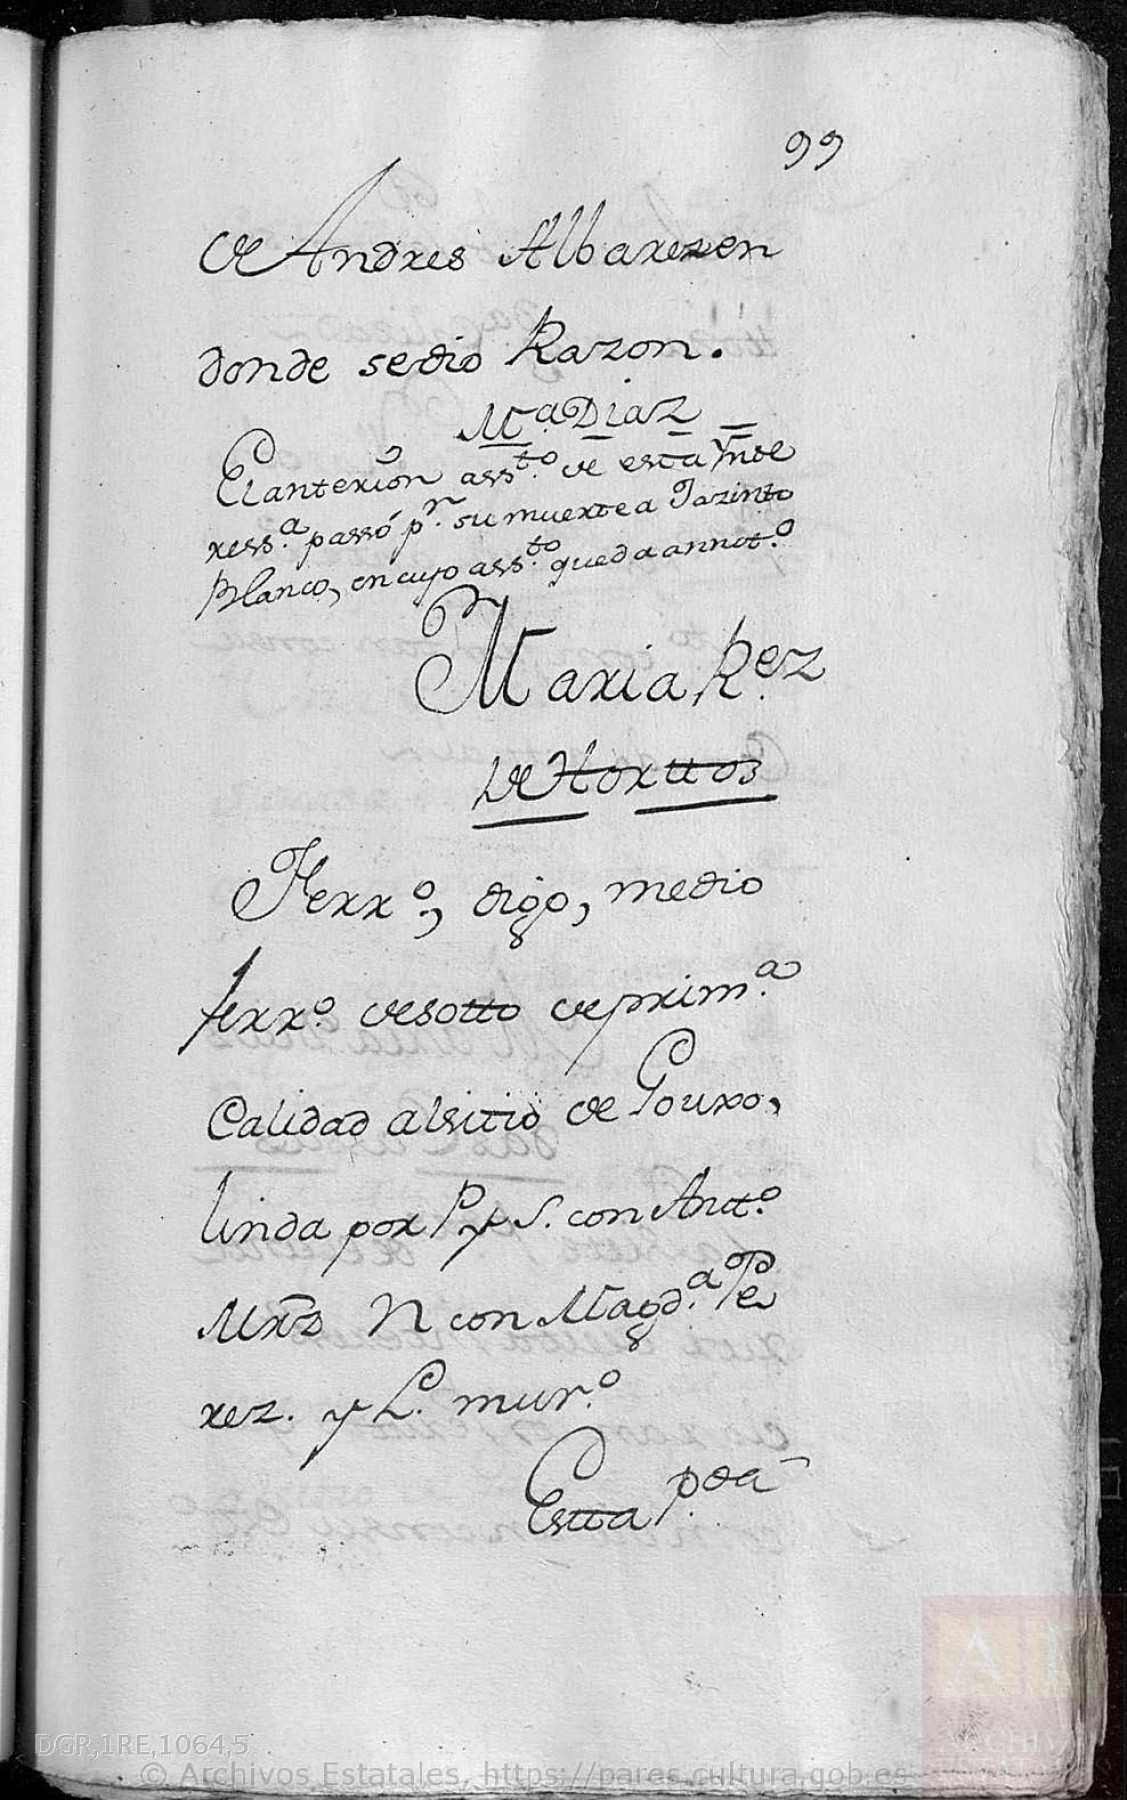 99
de Andres Albarez en
donde sedio Razon.
M.ª Diaz
El anterior ass.to de esta Ynte
ress.ª passó p.r su muerte a Jazinto
Blanco, en cuyo ass.to queda annot.º
Maria R.ez
de Horttos
Ferr.º, digo, medio
ferr.º desotto de prim.ª
Calidad alsitio de Pouxo,
linda por P. y S. con Ant.º
Mrz N con Magd.ª Pe
rez. y L. mur.º
Estta p.da
DGR,1RE,1064,5
© Archivos Estatales, https://pares.cultura.gob.es